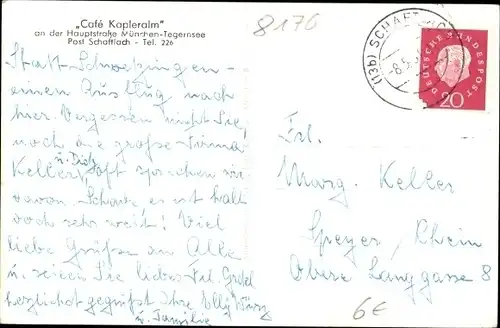 „Café Kogleralm"
an der Hauptstraße München-Tegernsee
Post Schaftlach - Tel. 226
8170
(13b) SCHAFTLACH
DEUTSCHE BUNDESPOST
20
Statt Schwetzingen -
einen Ausflug nach
hier. Vergessen nicht Sie,
noch die große Firma
u. Dietz
Keller, oft sprechen wir
davon Schade es ist halt
doch sehr weit! Viel
liebe Grüße an Alle
u. seien Sie liebes Frl. Gretel
herzlichst gegrüßt Ihre Elly
u. Familie
Frl.
Marg. Keller
Speyer / Rhein
Obere Langgasse 8
6€